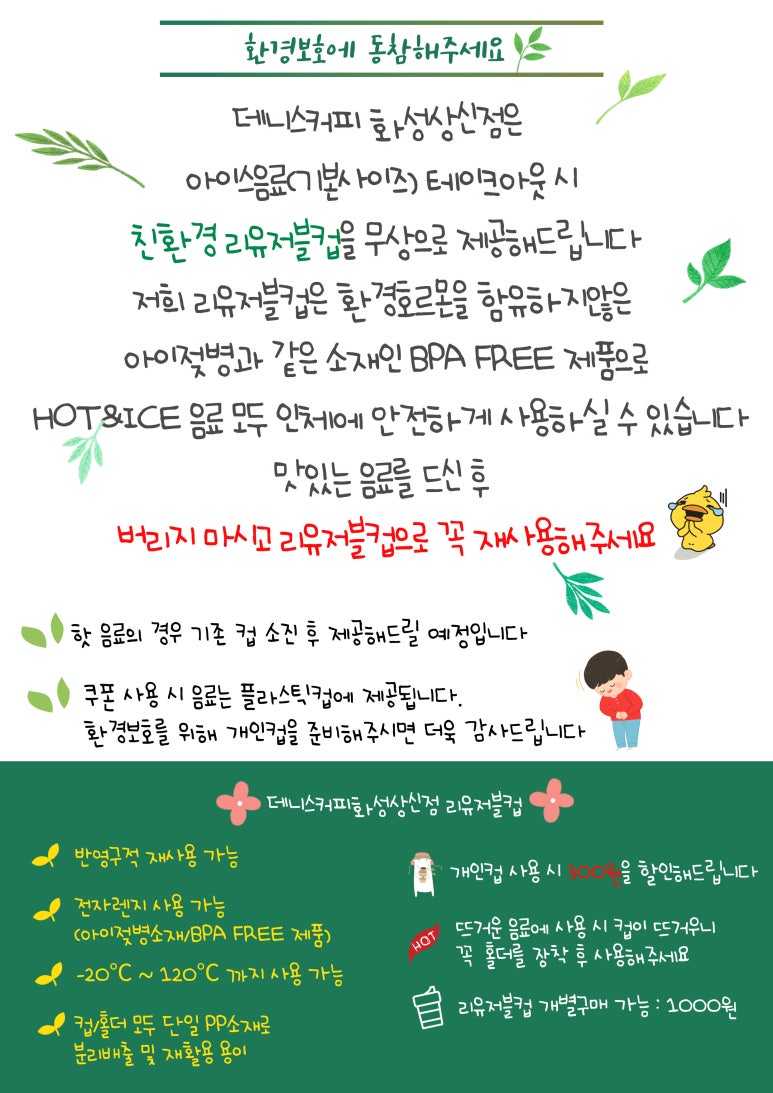 환경보호에 동참해주세요
데니스커피 화성상신점은
아이스음료(기본사이즈) 테이크아웃 시
친환경 리유저블컵을 무상으로 제공해드립니다
저희 리유저블컵은 환경호르몬을 함유하지않은
아이젖병과 같은 소재인 BPA FREE 제품으로
HOT&ICE 음료 모두 인체에 안전하게 사용하실 수 있습니다
맛있는 음료를 드신 후
버리지 마시고 리유저블컵으로 꼭 재사용해주세요
핫 음료의 경우 기존 컵 소진 후 제공해드릴 예정입니다
쿠폰 사용 시 음료는 플라스틱컵에 제공됩니다.
환경보호를 위해 개인컵을 준비해주시면 더욱 감사드립니다
데니스커피화성상신점 리유저블컵
반영구적 재사용 가능
전자렌지 사용 가능
(아이젖병소재/BPA FREE 제품)
-20°C ~ 120°C 까지 사용 가능
컵/홀더 모두 단일 PP소재로
분리배출 및 재활용 용이
개인컵 사용 시 300원을 할인해드립니다
HOT
뜨거운 음료에 사용 시 컵이 뜨거우니
꼭 홀더를 장착 후 사용해주세요
리유저블컵 개별구매 가능 : 1000원